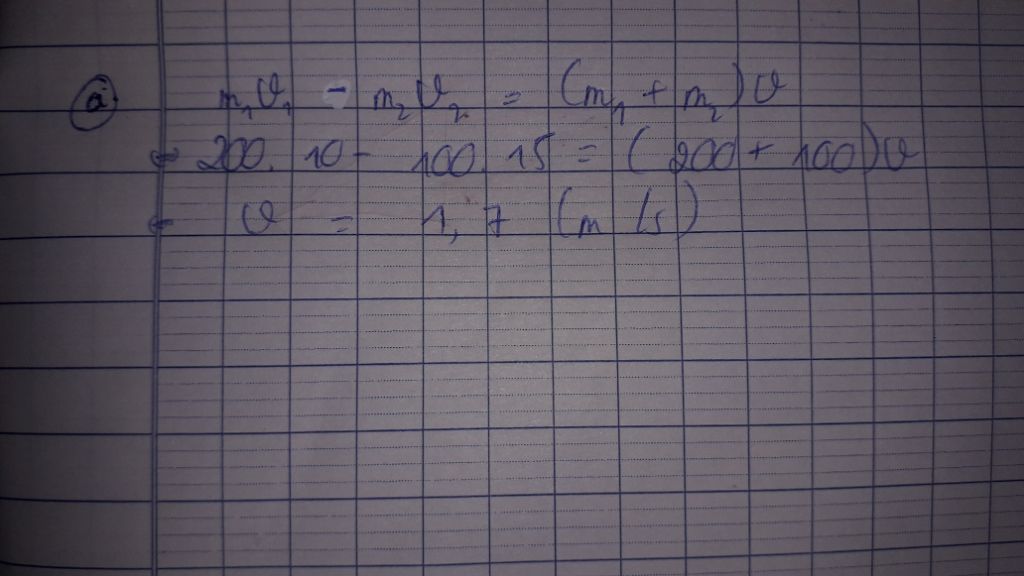 a) m₁v₁ - m₂v₂ = (m₁ + m₂)v
⇔ 200. 10 - 100. 15 = (200 + 100)v
⇔ v = 1,7 (m/s)